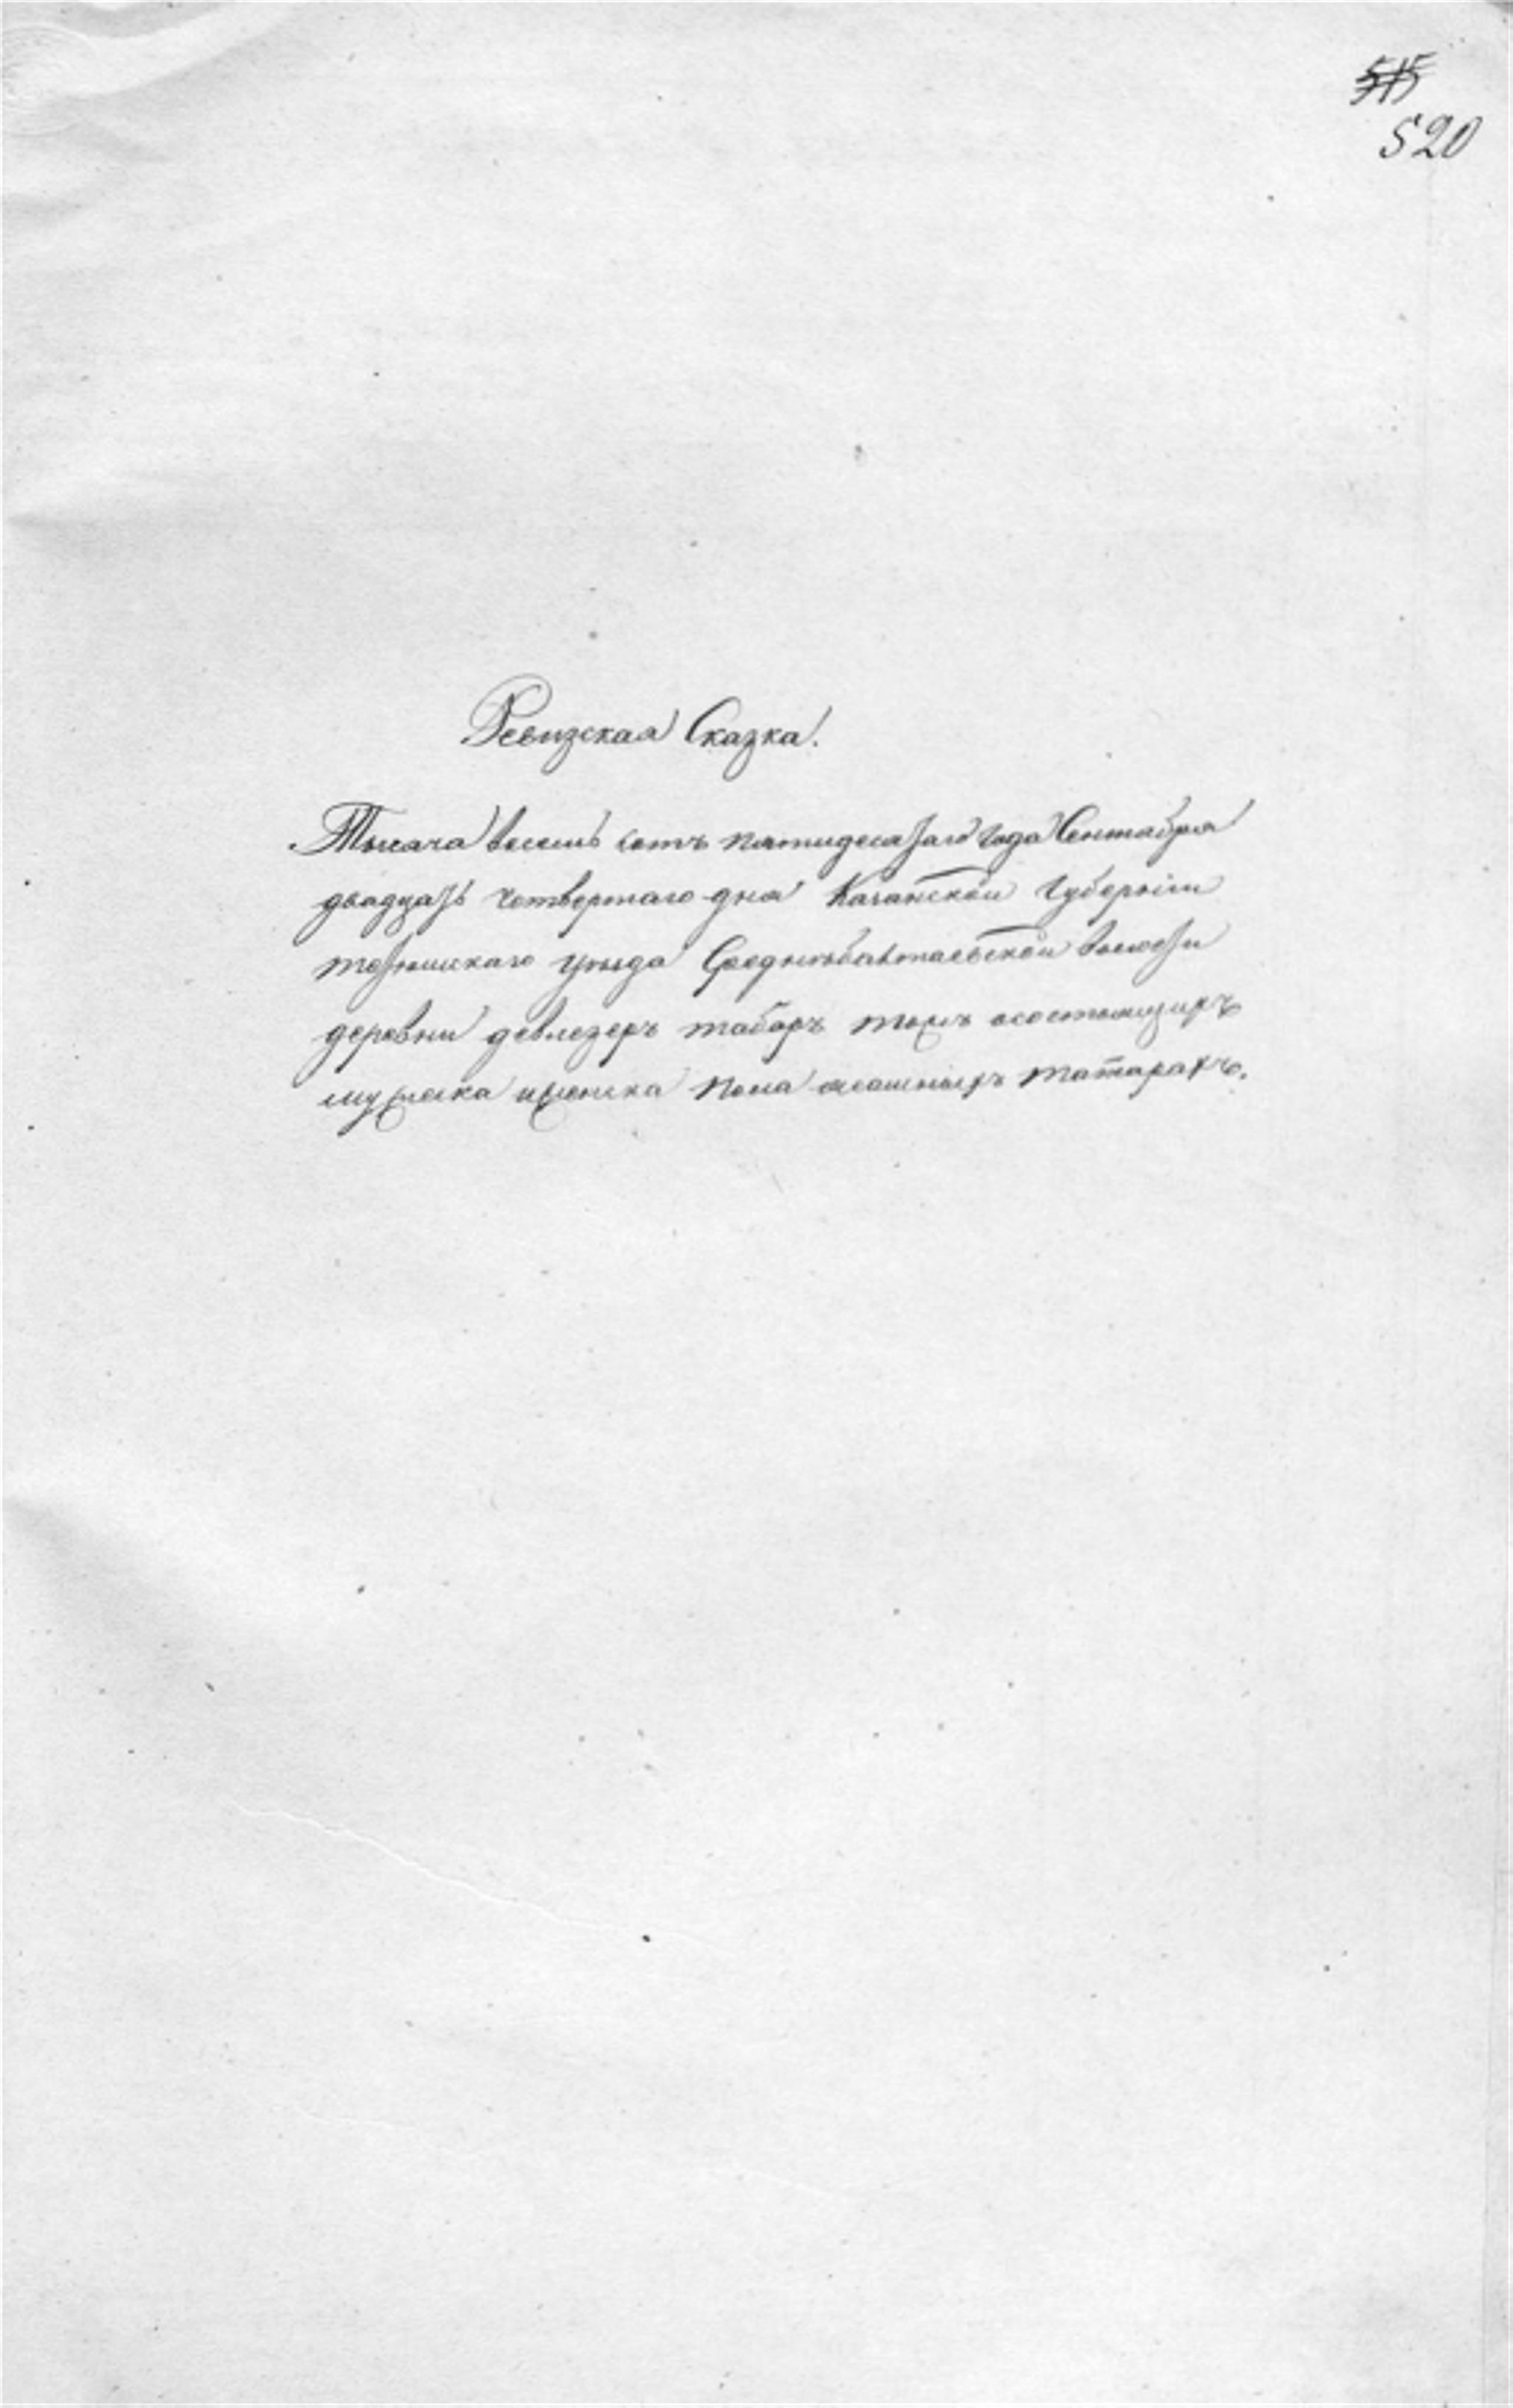 515
520
Ревизская Сказка.
Тысяча восемь сотъ пятидесятаго года Сентября
двадцать четвертаго дня Казанской Губерніи
тетюшскаго уезда Средне балтаевской волости
деревни девлезерь табарь тожъ осостоящихъ
мужеска иженска пола ясашныхъ татарахъ.